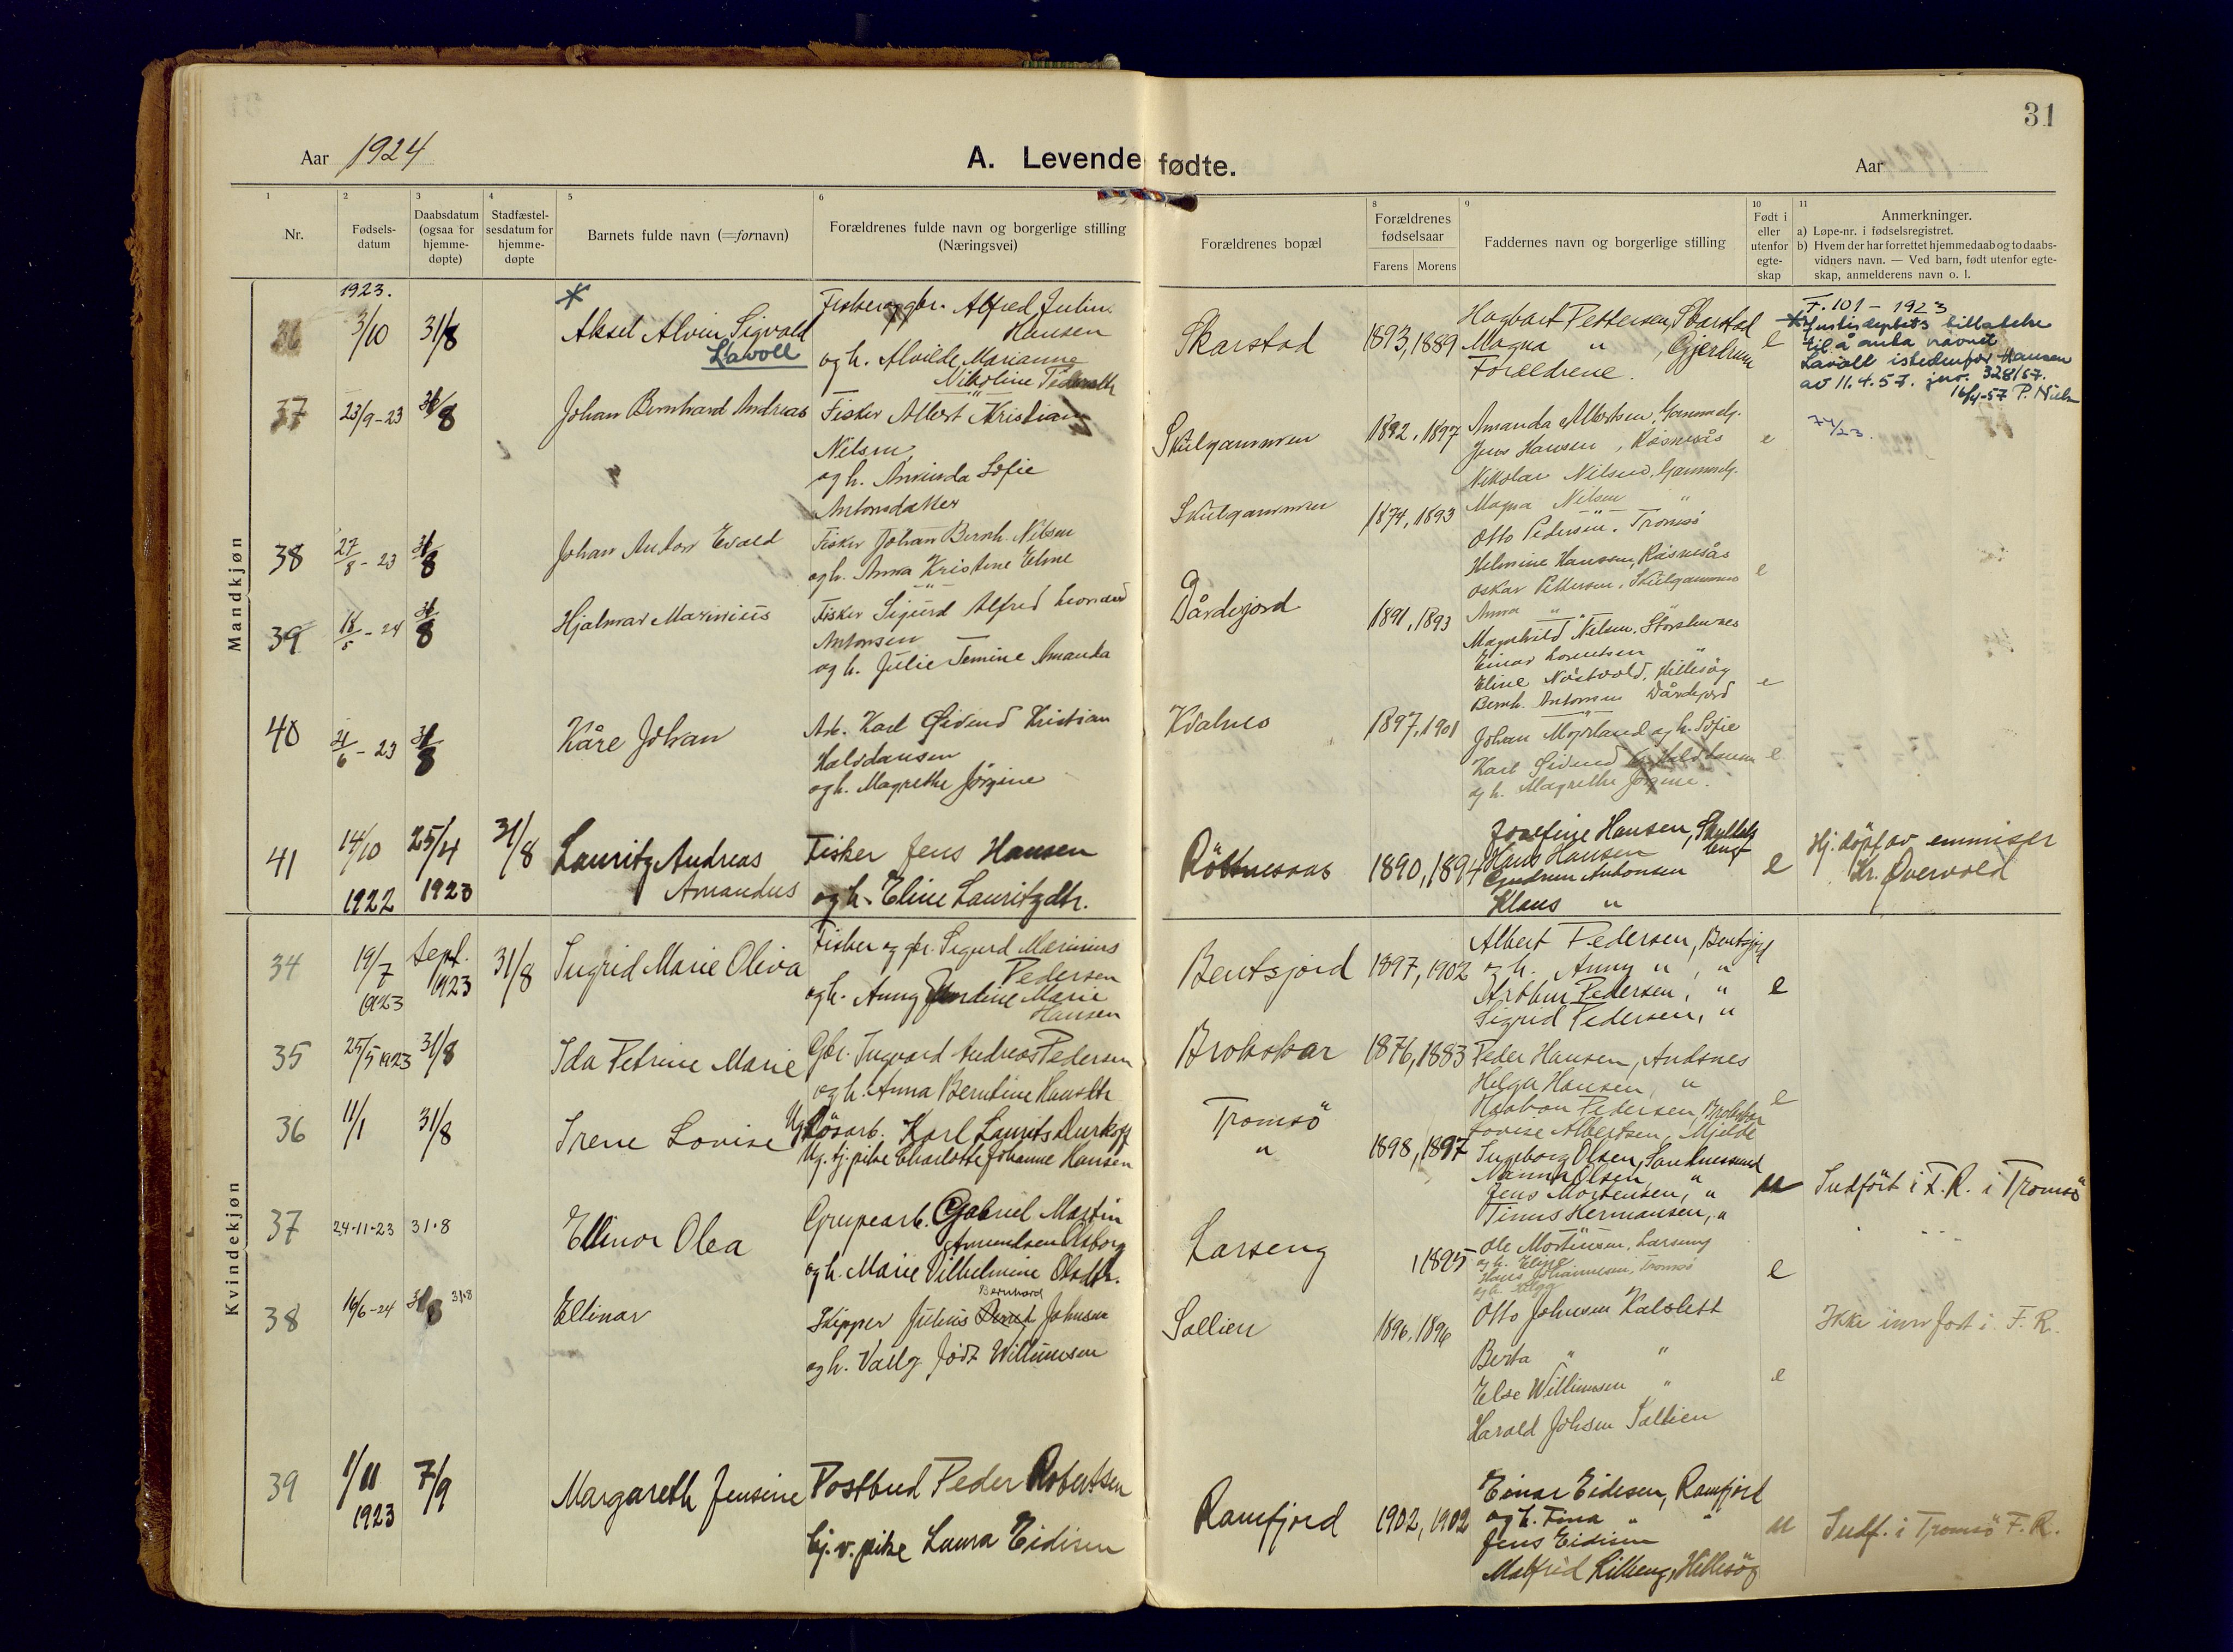 31
Aar 1924
A. Levende fødte.
Aar
1 2 3 4 5 6 8 9 10 11
Nr.
Fødsels-
datum
Daabsdatum
(ogsaa for
hjemme-
døpte)
Stadfæstel-
sesdatum for
hjemme-
døpte
Barnets fulde navn (=fornavn)
Forældrenes fulde navn og borgerlige stilling
(Næringsvei)
Forældrenes bopæl
Forældrenes
fødselsaar
Farens Morens
Faddernes navn og borgerlige stilling
Født i
eller
utenfor
egte-
skap
Anmerkninger.
a) Løpe-nr. i fødselsregistret.
b) Hvem der har forrettet hjemmedaab og to daabs-
vidners navn. — Ved barn, født utenfor egte-
skap, anmelderens navn o. l.
Mandkjøn
1923.
36 3/10 31/8
*
Aksel Alvin Sigvald
Lavoll
Fisker og gbr. Alfred Julin
Hansen
og h. Alvilde Marianne
Nikoline
Skarstad 1893, 1889
Hagbart Pettersen, Skarstad
Magna " , Gjerdrum
Forældrene.
e
F. 101 - 1923
* Justisdeptets tillatelse
til å anta navnet
Lavoll istedenfor Hansen
av 11.4.57. jnr. 328/57.
16/4-57 P. Niels
37 23/9-23 31/8
Johan Bernhard Andreas
Fisker Albert Kristian
Nilsen,
og h. Aminda Sofie
Antonsdatter
Skulgammen 1892, 1897
Amanda Albertsen, Gammelg.
Jens Hansen, Røsnesås
Nikolai Nilsen, Gammelg.
Magna Nilsen "
e
74/23.
38 27/8-23 31/8
Johan Anton Evald
Fisker Johan Bernh. Nilsen
og h. Anna Kristine Eline
Skulgammen 1874, 1893
Otto Pedersen, Tromsö
Helmine Hanssen, Røsnesås
Oskar Pettersen, Skulgammen
Anna "
e
39 18/5-24 31/8
Hjalmar Marinius
Fisker Sigurd Alfred Leonard
Antonsen
og h. Julie Jemine Amanda
Dårdesjord 1891, 1893
Magnhild Nilsen, Storslunes
Einar Lorentsen "
Eline Nöstvold, Hillesöy
Bernh. Antonsen Dårdesjord
e
40 21/6-23 31/8
Kåre Johan
Arb. Karl Eivind Kristian
Halvdansen
og h. Magrethe Jörgine
Kvalnes 1897, 1901
Johan Mörland og h. Sofie
Karl Eivind Halvdansen
og h. Magrethe Jörgine.
e
41 14/10 1922 25/4 1923 31/8
Lauritz Andreas
Amandus
Fisker Jens Hansen
og h. Eline Lauritzdtr.
1890, 1894
Josefine Hansen,
Hans Hansen
Gudrun Antonsen
Klaus "
e
Hj. döpt av emmisær
Kr. Øvervold
Kvindekjøn
34 19/7 1923 Sept. 1923 31/8
Ingrid Marie Oliva
Fisker og gbr. Sigurd Marinius
Pedersen
og h. Anny Marie
Hansen
Bentsjord 1897, 1902
Albert Pedersen, Bentsjord
og h. Anny " , "
Arthur Pedersen, "
Sigrid Pedersen, "
e
35 25/5 1923 31/8
Ida Petrine Marie
Gbr. Ingvard Andreas Pedersen
og h. Anna Berntine Hansdtr
Brokskar 1876, 1883
Peder Hansen, Andsnes
Helga Hansen, "
Haakon Pedersen, Brokskar
Lovise Albertsen, Mjelde
e
36 11/1 31/8
Irene Lovise
Ug. Lösarb. Karl Laurits Durkopf
Ug. tj. pike Charlotte Johanne Hansen
Tromsö
"
1898, 1897
Ingeborg Olsen, Sandnessund
Olsen, "
Jens Mortensen, "
Tinus Hermansen, "
u
Indfört i F. R. i Tromsö
37 24-11-23 31.8
Ellinor Olea
Grupearb. Gabriel Martin
Amundsen Olsborg
og h. Marie Vilhelmine Olsdtr.
Larseng , 1895
Ole Mortensen, Larseng
og h. Eline
Hans Johannesen, Tromsö
og h. Olga
e
38 16/6-24 31.8
Ellinor
Skipper Julius Bernhard Johnsen
og h. Valbg. född Willumsen
Sollien 1896, 1896
Otto Johnsen Kalslett
Berta " "
Else Willumsen "
Harald Johsen Sollien
e
Ikke innfört i F. R.
39 1/11 1923 7/9
Margareth Jensine
Postbud Peder Robertsen
tj. v. pike Laura Eidisen
Ramfjord 1902, 1902
Einar Eidesen, Ramfjord
og h. Fina " "
Jens Eidisen
Malfrid Lilleng, Hillesöy
u
Indf. i Tromsö F. R.